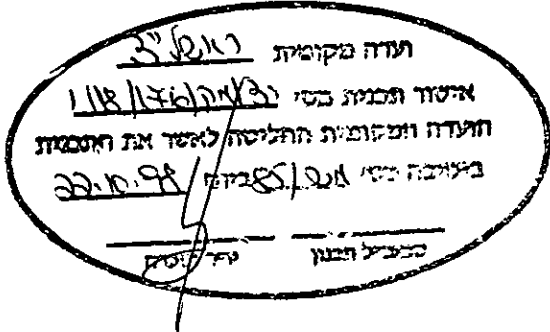 ועדה מקומית ראשל"צ
אישור תכנית מס' רצ/מק/1/18/176
הועדה המקומית החליטה לאשר את התכנית
בישיבה מס' 85/ ביום 22.10.98
סמנכ"ל תכנון יו"ר הועדה